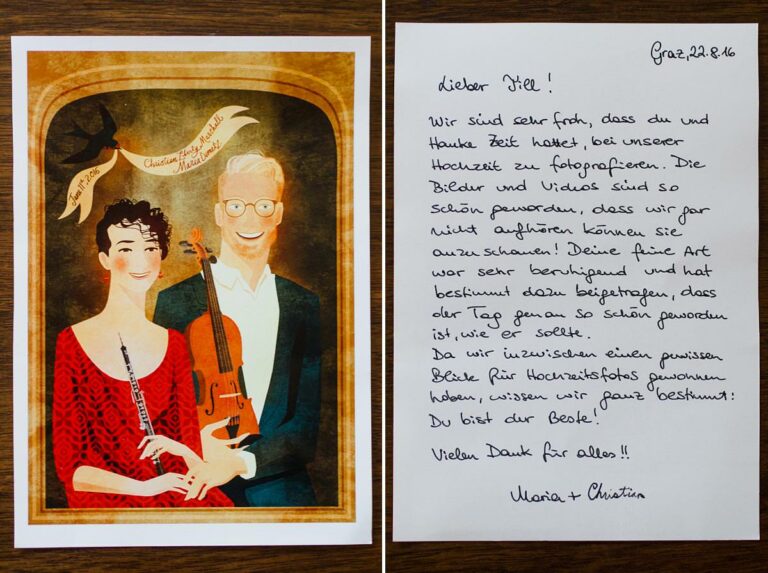 June 11th, 2016
Christian
Maria
Graz, 22.8.16
Lieber Till!
Wir sind sehr froh, dass du und
Hauke Zeit hattet, bei unserer
Hochzeit zu fotografieren. Die
Bilder und Videos sind so
schön geworden, dass wir gar
nicht aufhören können sie
anzuschauen! Deine feine Art
war sehr beruhigend und hat
bestimmt dazu beigetragen, dass
der Tag genau so schön geworden
ist, wie er sollte.
Da wir inzwischen einen gewissen
Blick für Hochzeitsfotos gewonnen
haben, wissen wir ganz bestimmt:
Du bist der Beste!
Vielen Dank für alles!!
Maria + Christian